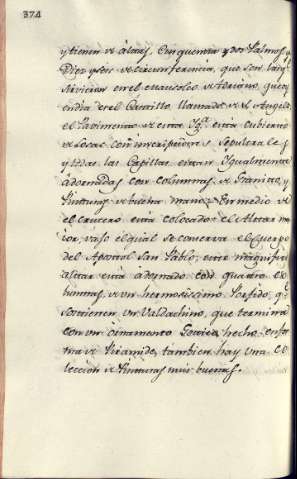 374
y tienen de altas, Cinquenta y dos Palmos, y
Diez y seis de circunferencia, que son las q.
sirvieron en el mausoleo de Adriano, que oy
en dia es el Castillo llamado de S. Angelo
el Pavimento de esta Ig.ª esta cubierto
de losas con inscripciones sepulcrales
y todas las Capillas estan Igualmente
adornadas con columnas de Granitto, y
Pinturas de buena mano. En medio de
el crucero esta colocado el Altar ma
ior, vaxo el qual se conserva el Cuerpo
del Apostol San Pablo, este magnifico
altar esta adornado con quatro co
lumnas de un hermosissimo Porfido, q.
sostienen un Valdachino, que termina
con un ornamento Gotico, hecho en for
ma de Piramide, tambien hay una co
leccion de Pinturas mui buenas.